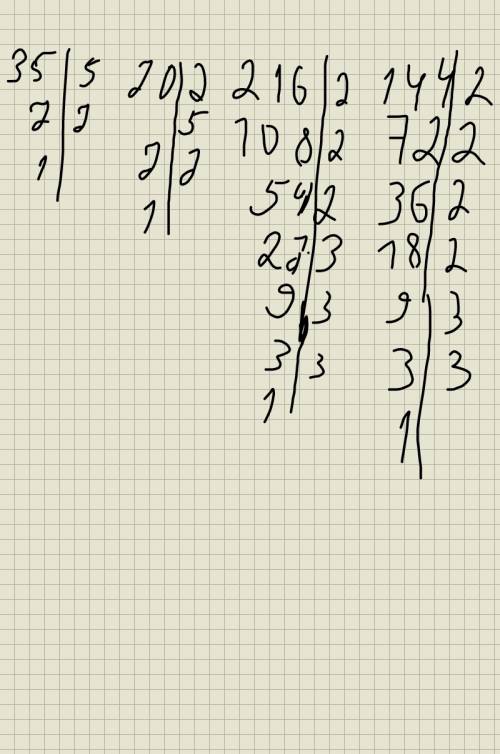 35|5
7|7
1|
70|2
|5
7|7
1|
216|2
108|2
54|2
27|3
9|3
3|3
1|
144|2
72|2
36|2
18|2
9|3
3|3
1|